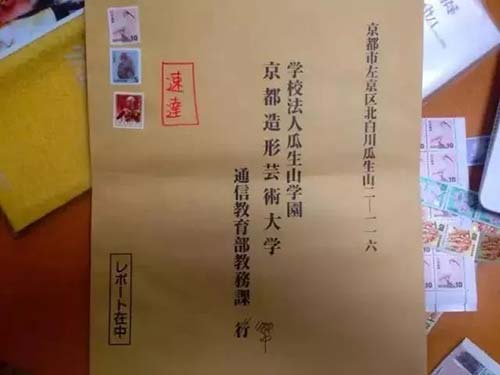 京都市左京区北白川瓜生山二―一一六
学校法人瓜生山学園
京都造形芸術大学
通信教育部教務課 行
御中
速達
レポート在中
10
10
10
10